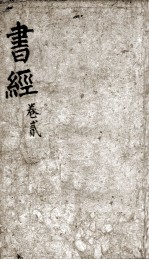 書經
卷貳